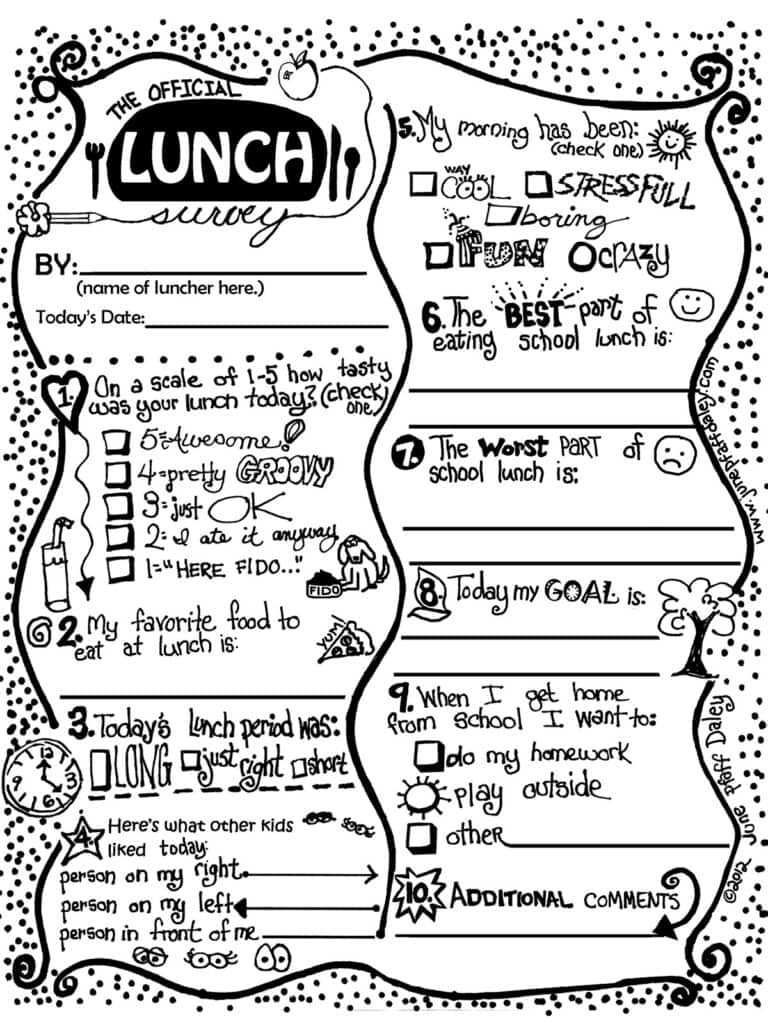 THE OFFICIAL
LUNCH
survey
BY:
(name of luncher here.)
Today's Date:
1. On a scale of 1-5 how tasty
was your lunch today? (check
one)
5=Awesome!
4=pretty GROOVY
3=just OK
2=I ate it anyway
1="HERE FIDO..."
FIDO
2. My favorite food to
eat at lunch is:
YUM!
3. Today's lunch period was:
LONG just right short
12
3
6
9
4. Here's what other kids
liked today:
person on my right
person on my left
person in front of me
5. My morning has been:
(check one)
WAY
COOL STRESSFULL
boring
FUN CRAZY
6. The "BEST" part of
eating school lunch is:
7. The Worst PART of
school lunch is:
8. Today my GOAL is:
9. When I get home
from school I want to:
do my homework
play outside
other
10. ADDITIONAL COMMENTS
www.junepfaffdaley.com
©2012 June Pfaff Daley